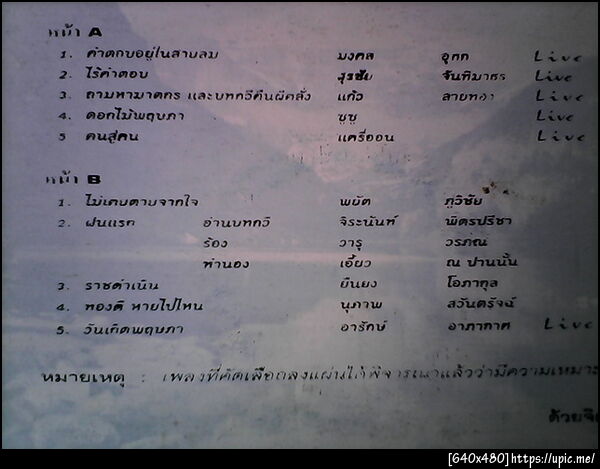 หน้า A
1. คำตอบอยู่ในสายลม มงคล อุทก Live
2. ไร้คำตอบ สุรชัย จันทิมาธร Live
3. ถามหามาตกร และบทกวีคืนผีคลั่ง แก้ว ลายทอง Live
4. ดอกไม้พฤษภา ซูซู Live
5 คนสู่คน แครี่ออน Live
หน้า B
1. ไม่เคยตายจากใจ พยัต ภูวิชัย
2. ฝนแรก อ่านบทกวี จิระนันท์ พิตรปรีชา
ร้อง วารุ วรภณ
ทำนอง เอี้ยว ณ ปานนั้น
3. ราชดำเนิน ยืนยง โอภากุล
4. ทองดี หายไปไหน นุภาพ สวันตรัจฉ์
5. วันเกิดพฤษภา อารักษ์ อาภากาศ Live
หมายเหตุ : เพลงที่คัดเลือกลงแผ่นได้พิจารณาแล้วว่ามีความเหมาะ
ด้วยจิ
[640x480]https://upic.me/